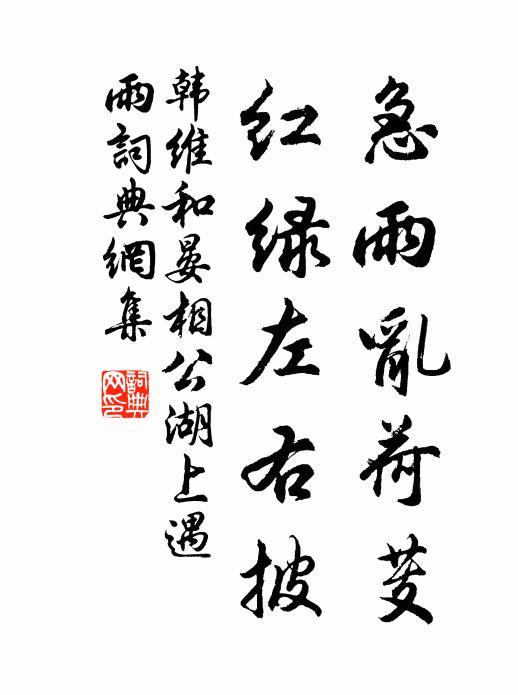 急雨亂荷芰
紅緑左右披
韩维和晏相公湖上遇
雨詞典網集
詞典
网印